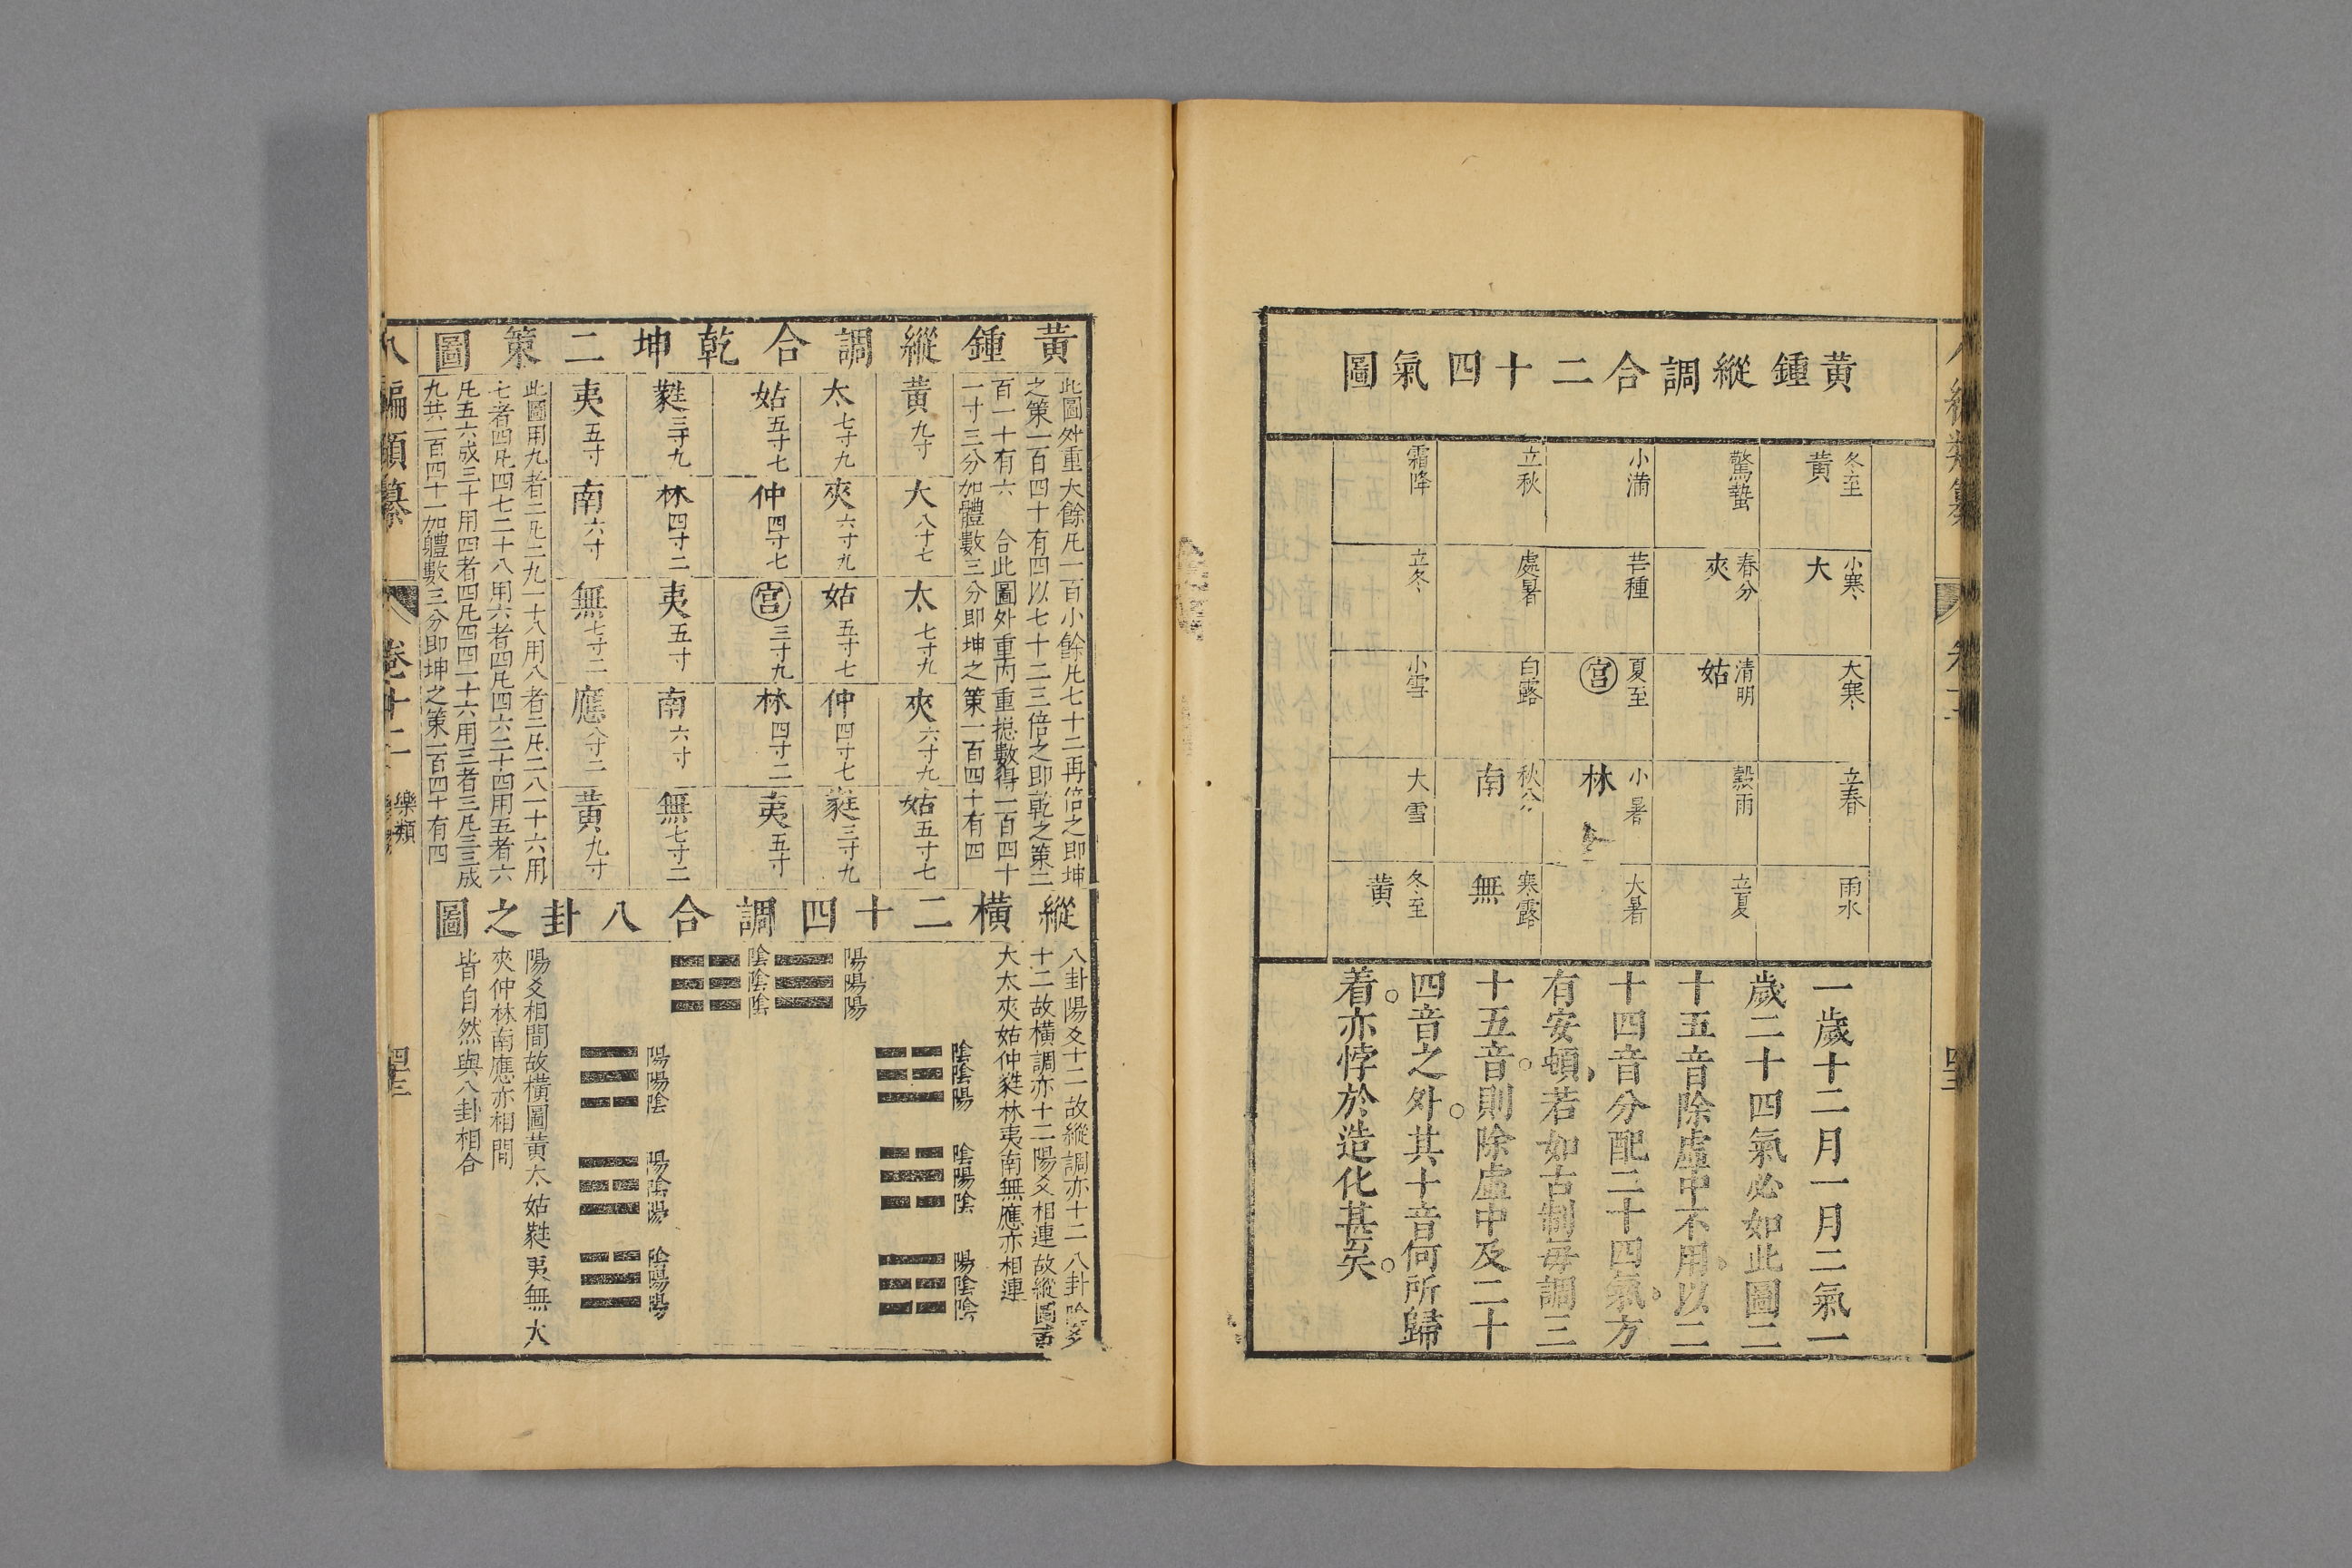 黃鍾縱調合二十四氣圖
冬至 黃
小寒 大
大寒
立春
雨水
驚蟄
春分 夾
清明 姑
穀雨
立夏
小滿
芒種
夏至 宮
小暑 林
大暑
立秋
處暑
白露
秋分 南
寒露 無
霜降
立冬
小雪
大雪
冬至 黃
一歲十二月一月二氣一
歲二十四氣必如此圖二
十五音除虛中不用以二
十四音分配二十四氣方
有安頓若如古制每調三
十五音則除虛中及二十
四音之外其十音何所歸
着亦悖於造化甚矣
黃鍾縱調合乾坤二策圖
此圖外重大餘凡一百小餘凡七十二再倍之即坤
之策一百四十有四以七十二三倍之即乾之策二
百一十有六 合此圖外重內重摠數得一百四十
一寸三分加體數三分即坤之策一百四十有四
黃九寸
大八寸七
太七寸九
夾六寸九
姑五寸七
太七寸九
夾六寸九
姑五寸七
仲四寸七
蕤三寸九
姑五寸七
仲四寸七
宮三寸九
林四寸二
夷五寸
蕤三寸九
林四寸二
夷五寸
南六寸
無七寸二
夷五寸
南六寸
無七寸二
應八寸二
黃九寸
此圖用九者二凡二九一十八用八者二凡二八一十六用
七者四凡四七二十八用六者四凡四六二十四用五者六
凡五六成三十用四者四凡四四一十六用三者三凡三三成
九共一百四十一加體數三分即坤之策一百四十有四
縱橫二十四調合八卦之圖
八卦陽爻十二故縱調亦十二八卦陰爻
十二故橫調亦十二陽爻相連故縱圖黃
大太夾姑仲蕤林夷南無應亦相連
陽陽陽
陰陰陰
陰陰陽
陰陽陰
陽陰陰
陽陽陰
陽陰陽
陰陽陽
陽爻相間故橫圖黃太姑蕤夷無大
夾仲林南應亦相間
皆自然與八卦相合
八編類纂
卷十二
樂類